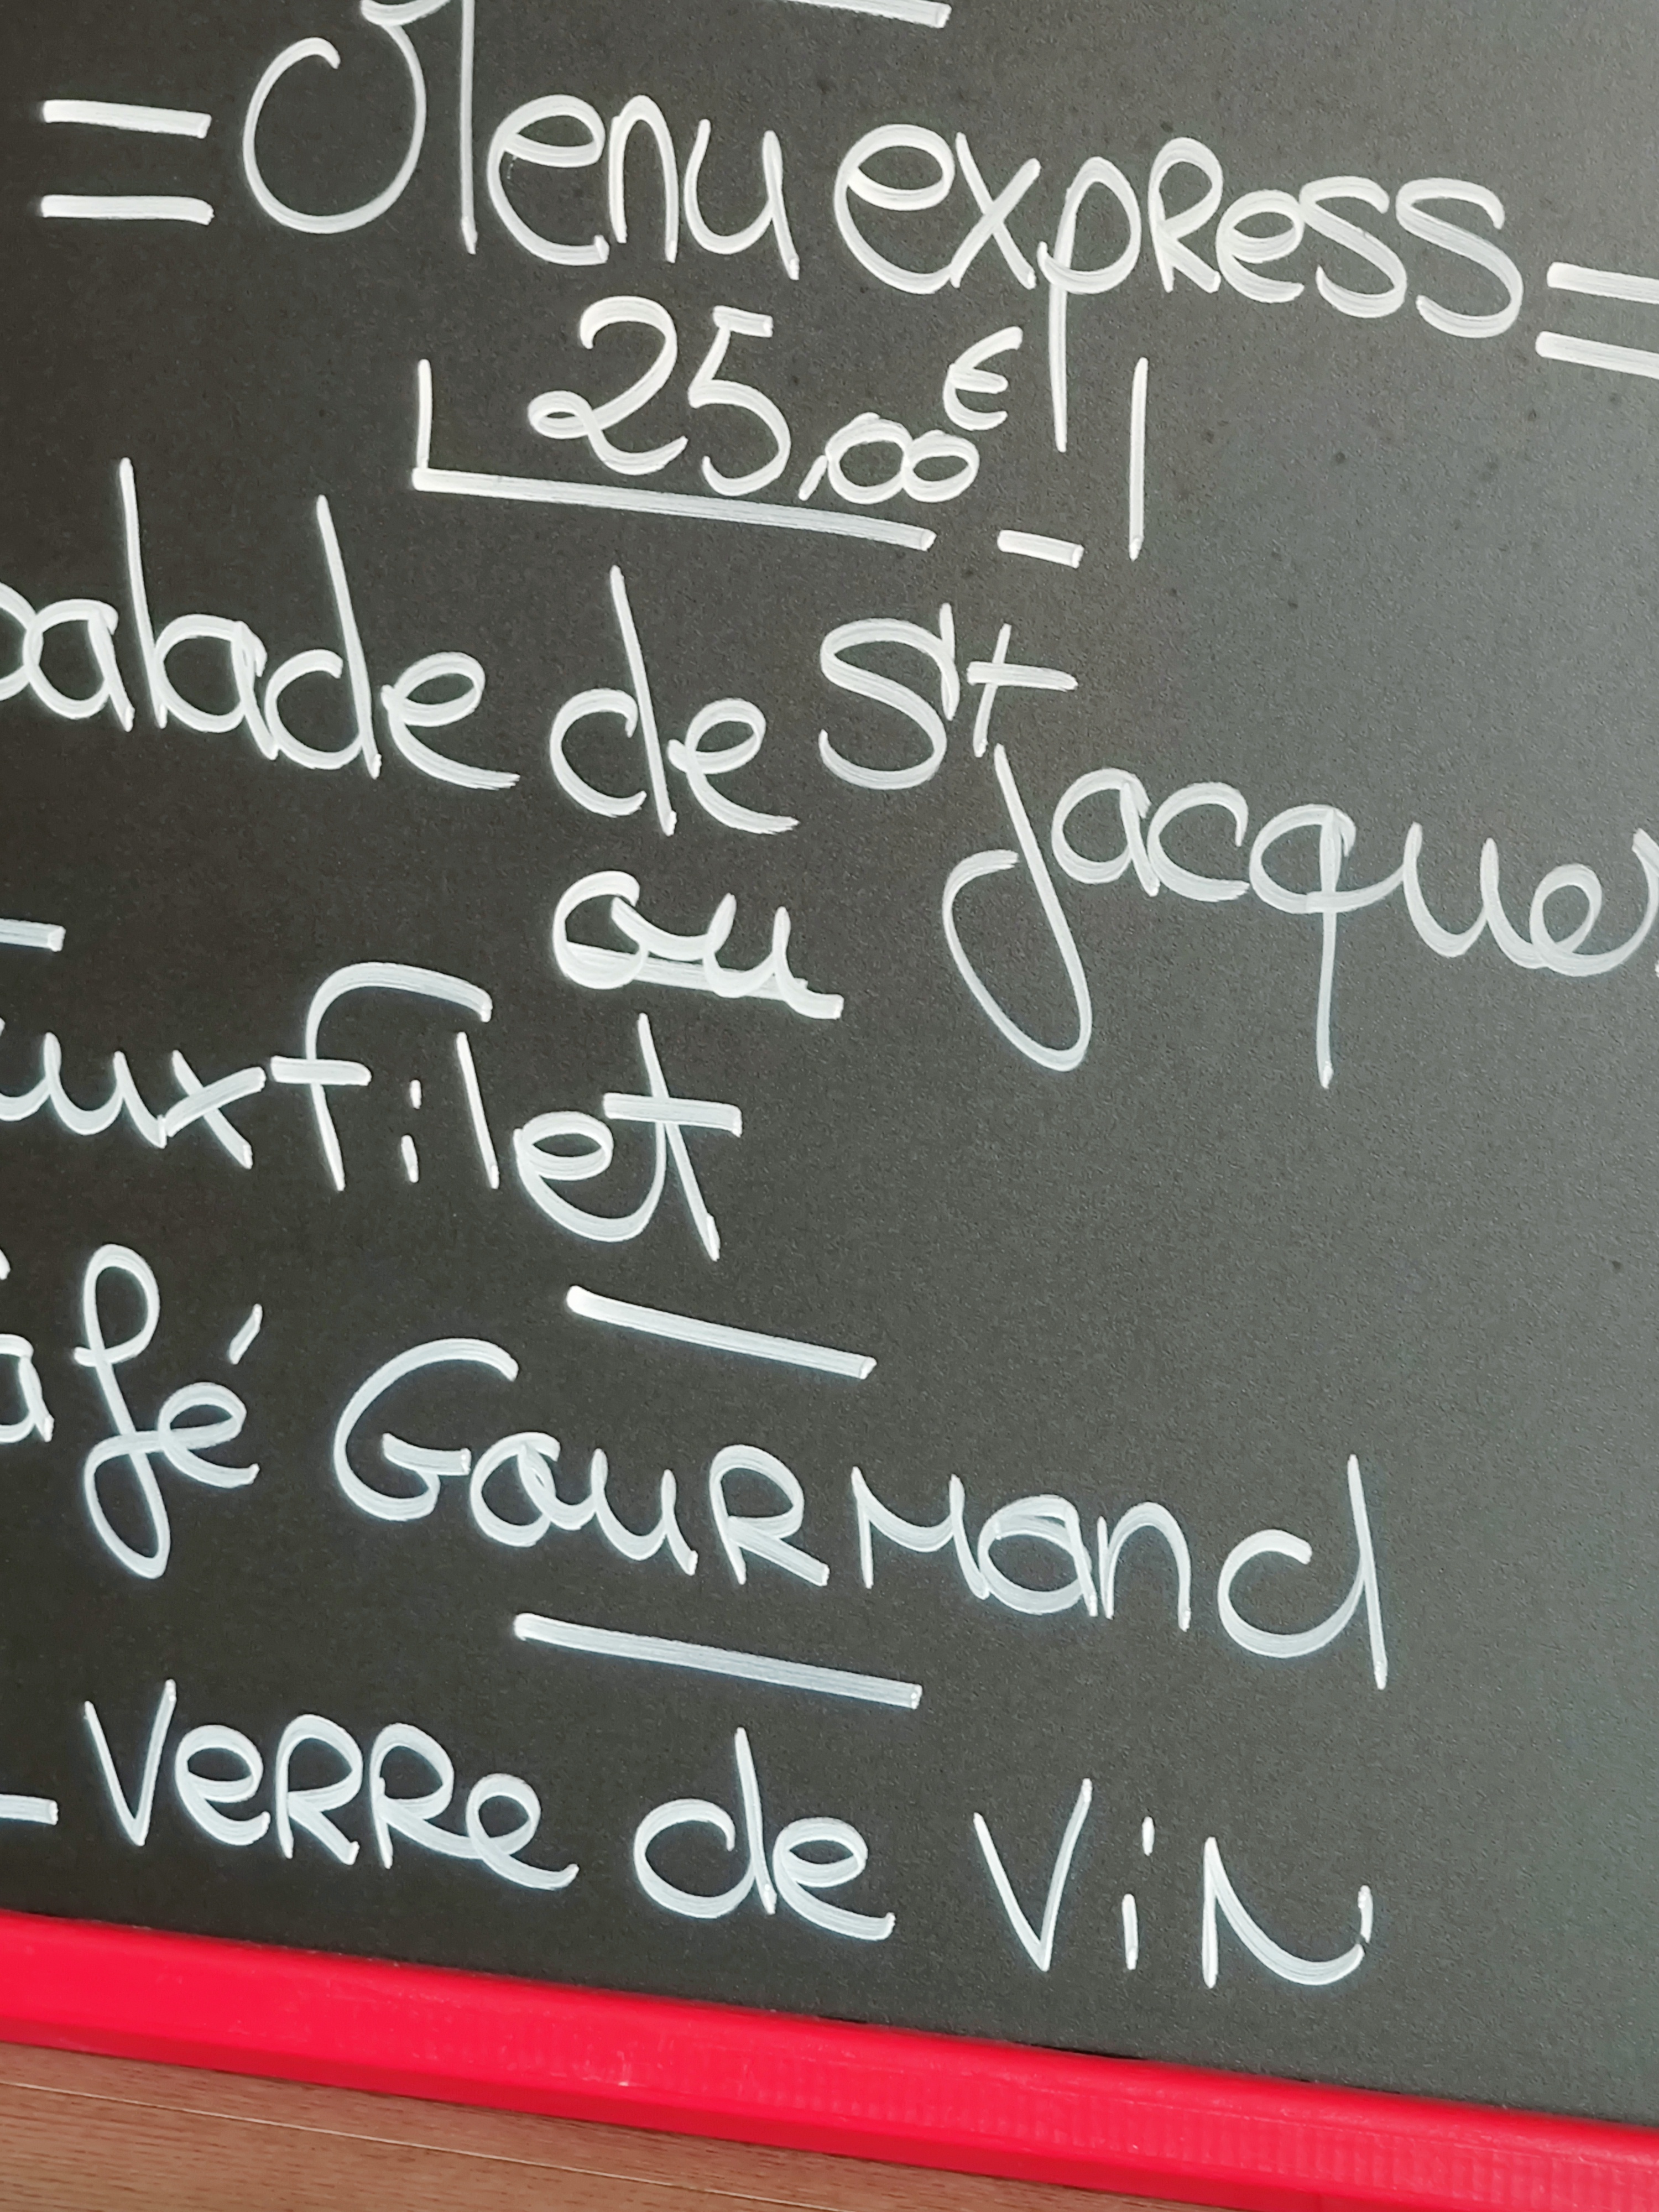 = Menu express =
25,00€
balade de St jacques
ou
auxfilet
afé Gourmand
- Verre de ViN